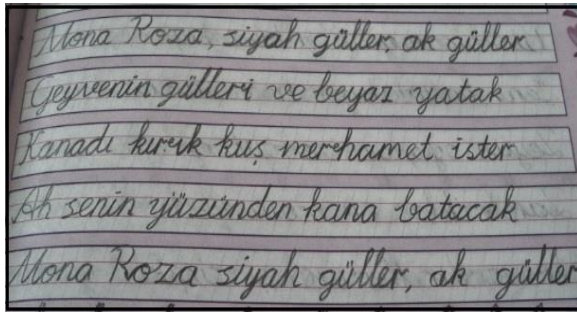 Mona Roza, siyah güller, ak güller
Geyvenin gülleri ve beyaz yatak
Kanadı kırık kuş merhamet ister
Ah senin yüzünden kana batacak
Mona Roza siyah güller, ak güller